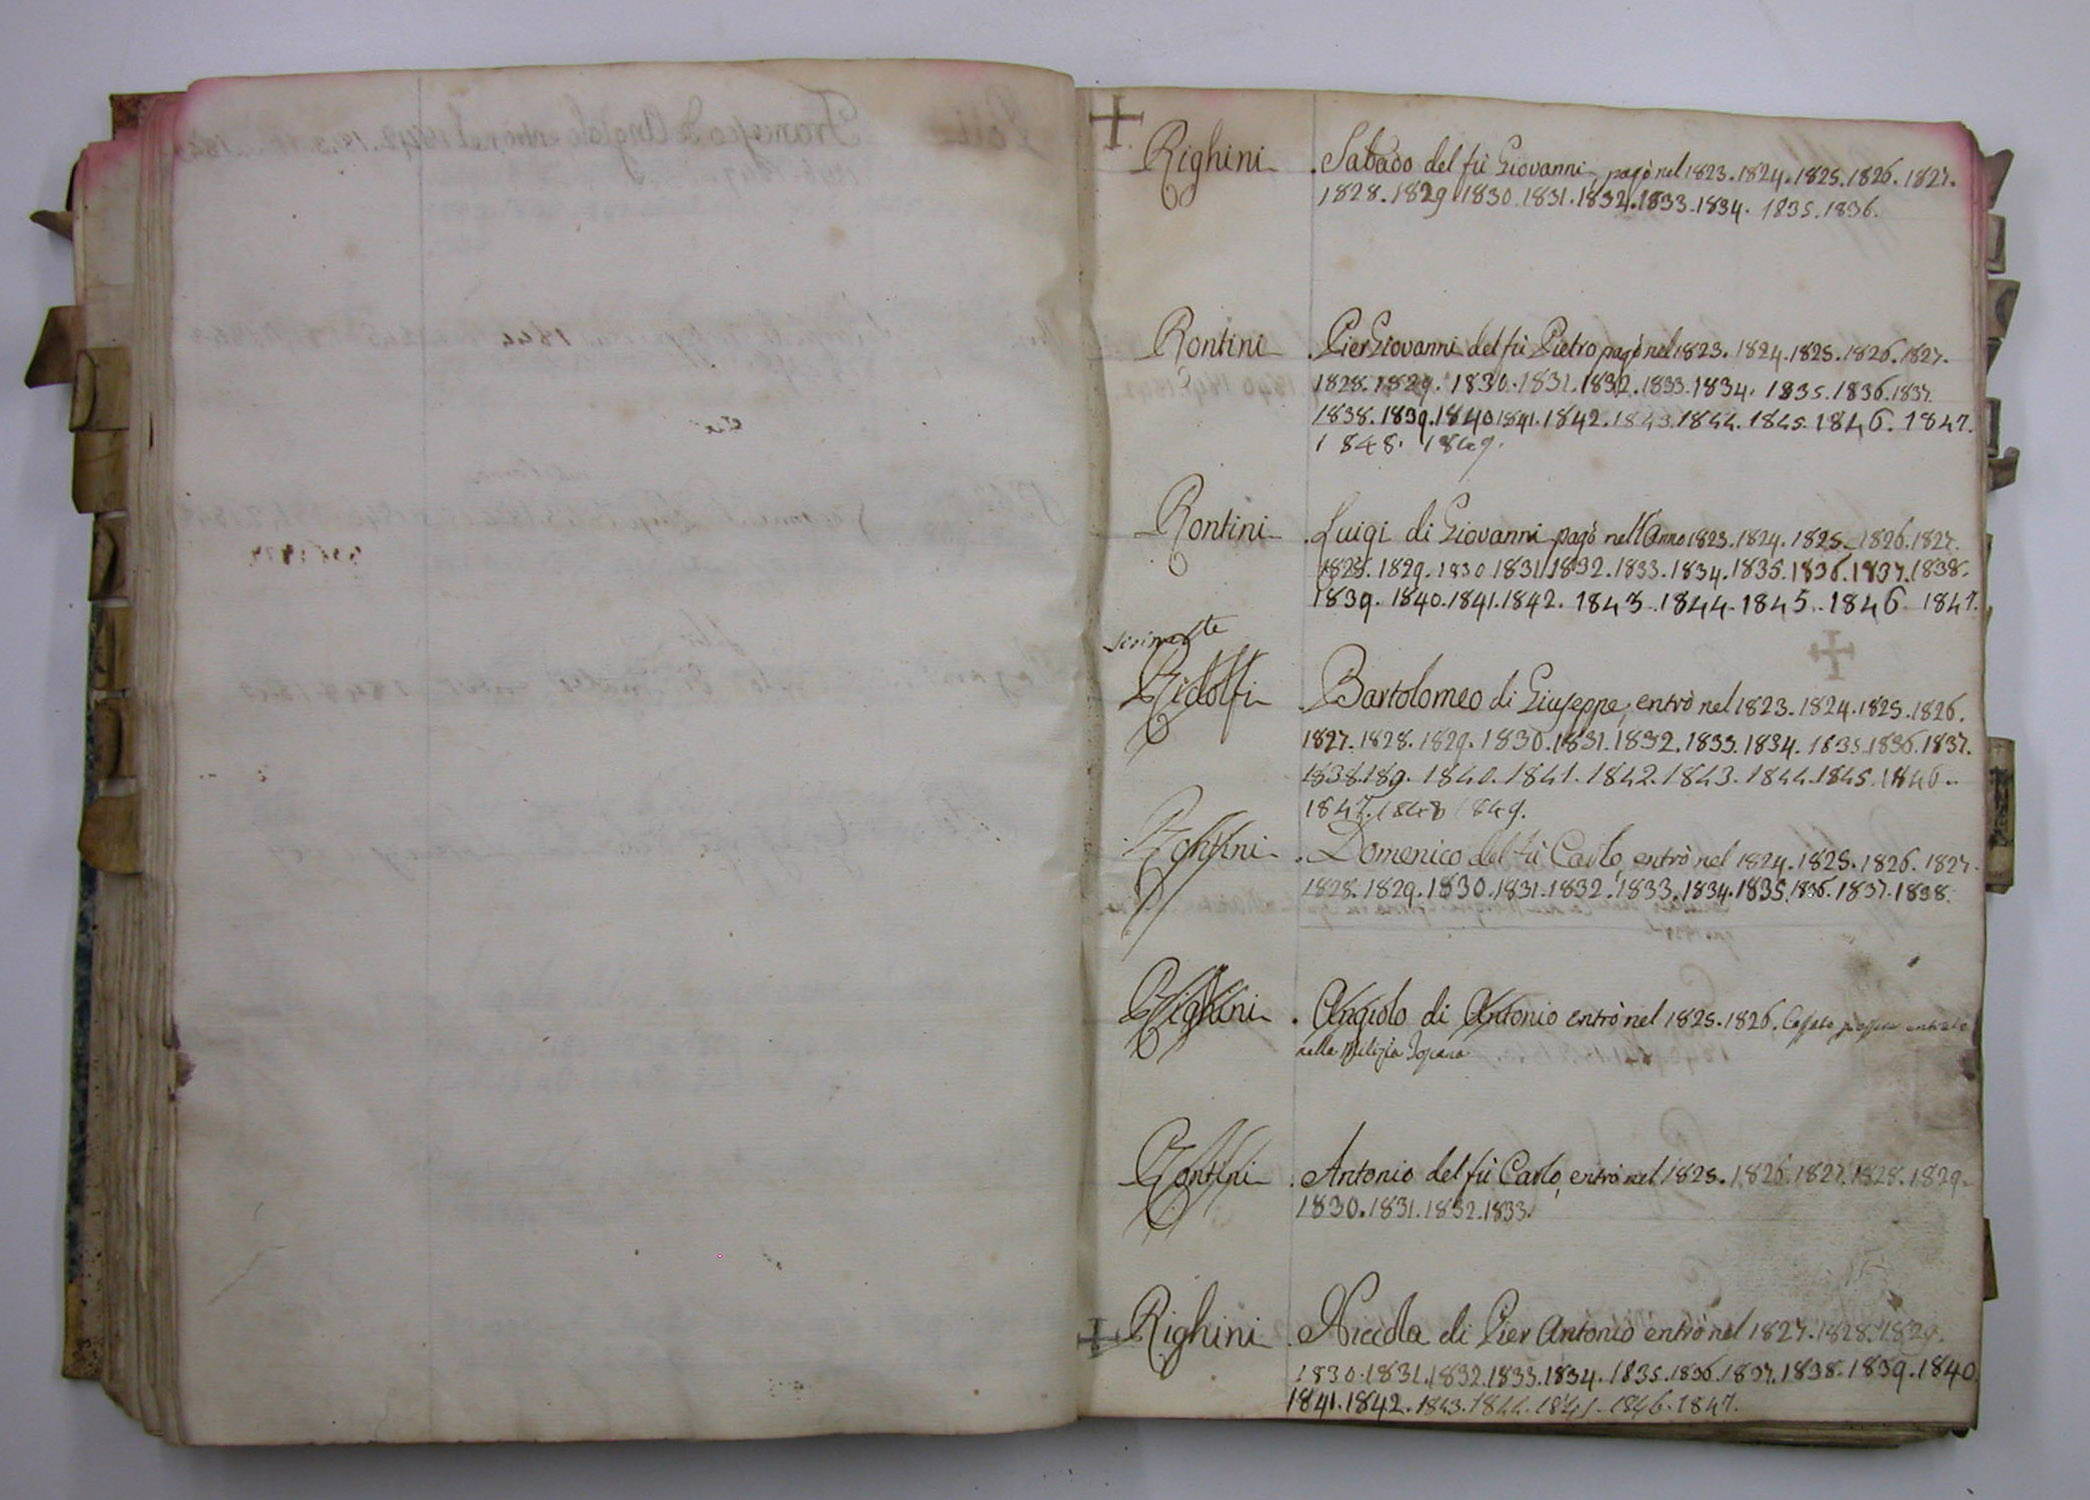 Righini . Sabado del fù Giovanni pagò nel 1823. 1824. 1825. 1826. 1827.
1828. 1829. 1830. 1831. 1832. 1833. 1834. 1835. 1836.
Rontini . Pier Giovanni del fù Pietro pagò nel 1823. 1824. 1825. 1826. 1827.
1828. 1829. 1830. 1831. 1832. 1833. 1834. 1835. 1836. 1837.
1838. 1839. 1840. 1841. 1842. 1843. 1844. 1845. 1846. 1847.
1848. 1849.
Rontini . Luigi di Giovanni pagò nell'Anno 1823. 1824. 1825. 1826. 1827.
1828. 1829. 1830. 1831. 1832. 1833. 1834. 1835. 1836. 1837. 1838.
1839. 1840. 1841. 1842. 1843. 1844. 1845. 1846. 1847.
Ridolfi . Bartolomeo di Giuseppe, entrò nel 1823. 1824. 1825. 1826.
1827. 1828. 1829. 1830. 1831. 1832. 1833. 1834. 1835. 1836. 1837.
1838. 189. 1840. 1841. 1842. 1843. 1844. 1845. 1846.
1847. 1848 1849.
Rontini . Domenico del fù Carlo, entrò nel 1824. 1825. 1826. 1827.
1828. 1829. 1830. 1831. 1832. 1833. 1834. 1835. 1836. 1837. 1838.
Righini . Angiolo di Antonio entrò nel 1825. 1826. Cassato entrato
nella Milizia
Rontini . Antonio del fù Carlo, entrò nel 1825. 1826. 1827. 1828. 1829.
1830. 1831. 1832. 1833.
Righini . Niccola di Pier Antonio entrò nel 1827. 1828. 1829.
1830. 1831. 1832. 1833. 1834. 1835. 1836. 1837. 1838. 1839. 1840
1841. 1842. 1843. 1844. 1845. 1846. 1847.